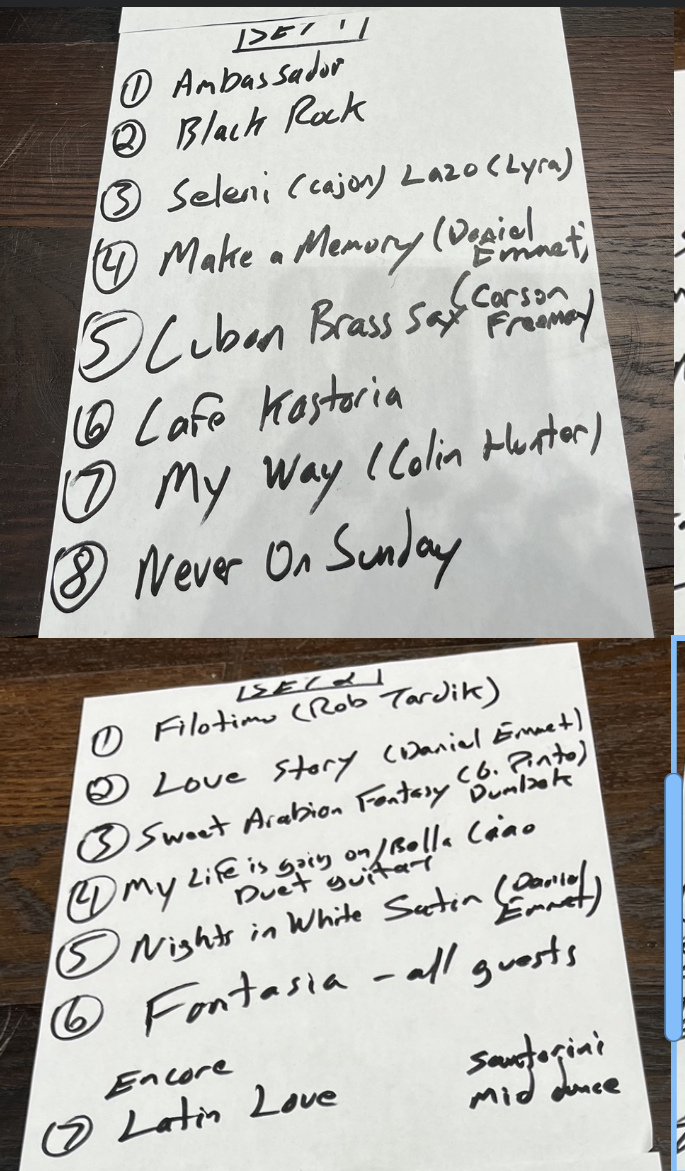 SET 1
① Ambassador
② Black Rock
③ Seleni (cajon) Lazo (Lyra)
④ Make a Memory (Daniel
Emmet)
⑤ Cuban Brass Sax (Carson
Freeman)
⑥ Cafe Kastoria
⑦ My Way (Colin Hunter)
⑧ Never On Sunday
SET 2
① Filotimo (Rob Tardik)
② Love Story (Daniel Emmet)
③ Sweet Arabian Fantasy (G. Pinto)
Dumbek
④ My Life is going on/Bella Ciao
Duet guitar
⑤ Nights in White Satin (Daniel
Emmet)
⑥ Fantasia - all guests
Encore
⑦ Latin Love
Santorini
Mid dance